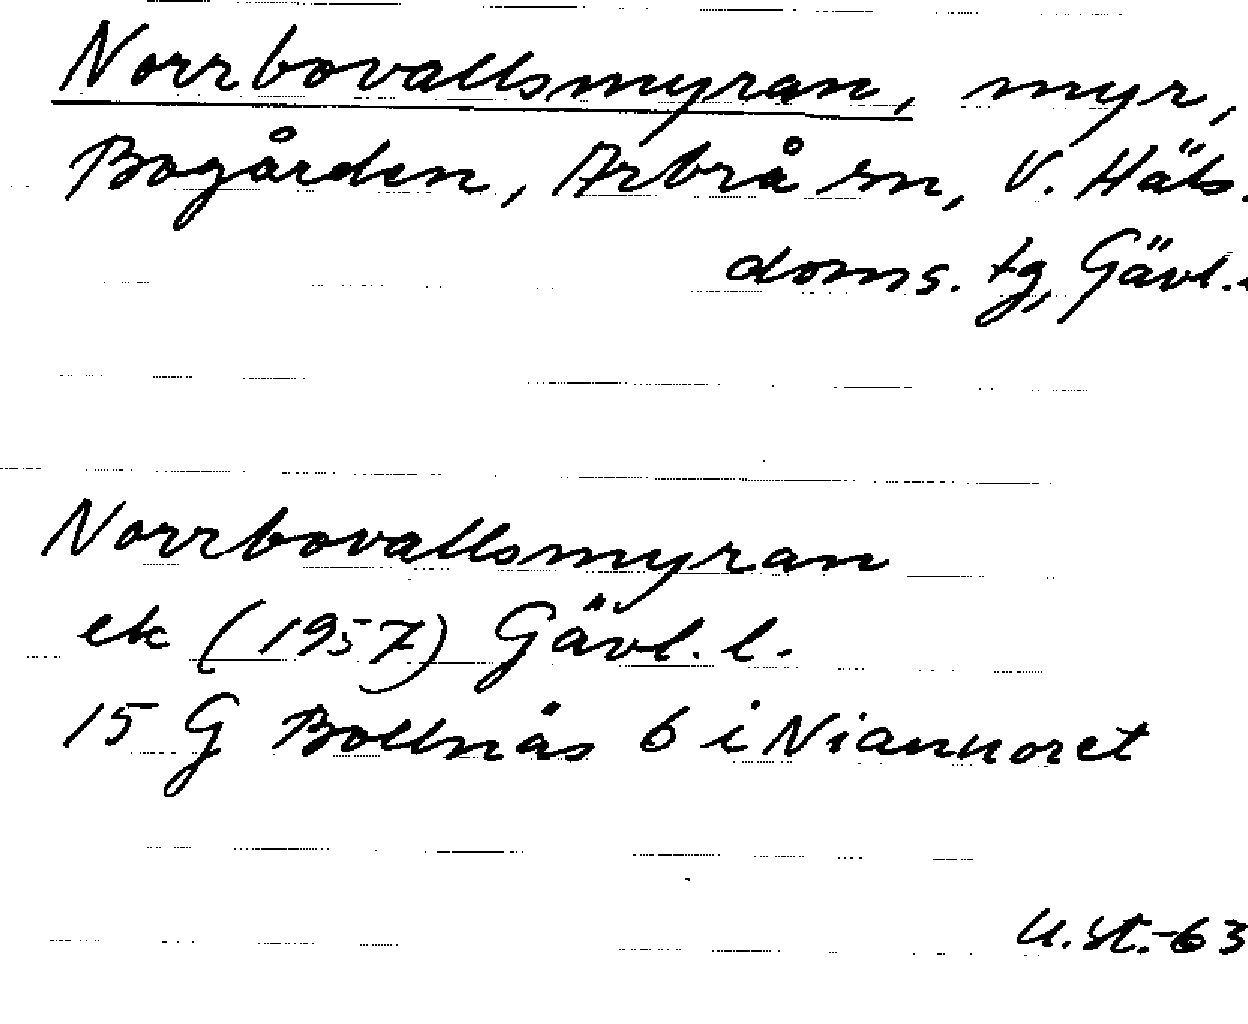 Norrbovallsmyran, myr,
Bogården, Arbrå sn, V. Häls.
doms. tg, Gävl.
Norrbovallsmyran
ek (1957) Gävl. l.
15 G Bollnäs 6 i Niannoret
U.St.-63